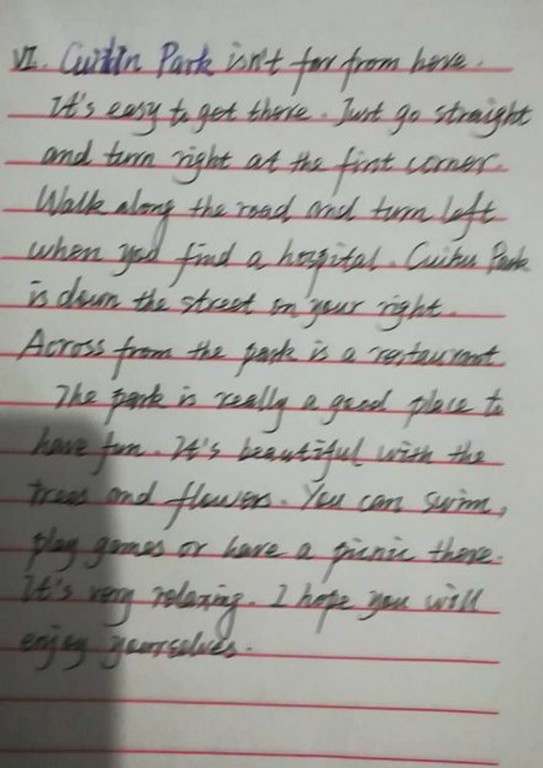 VI. Cuihu Park isn't far from here.
It's easy to get there. Just go straight
and turn right at the first corner.
Walk along the road and turn left
when you find a hospital. Cuihu Park
is down the street on your right.
Across from the park is a restaurant
The park is really a good place to
have fun. It's beautiful with the
trees and flowers. You can swim,
play games or have a picnic there.
It's very relaxing. I hope you will
enjoy yourselves.